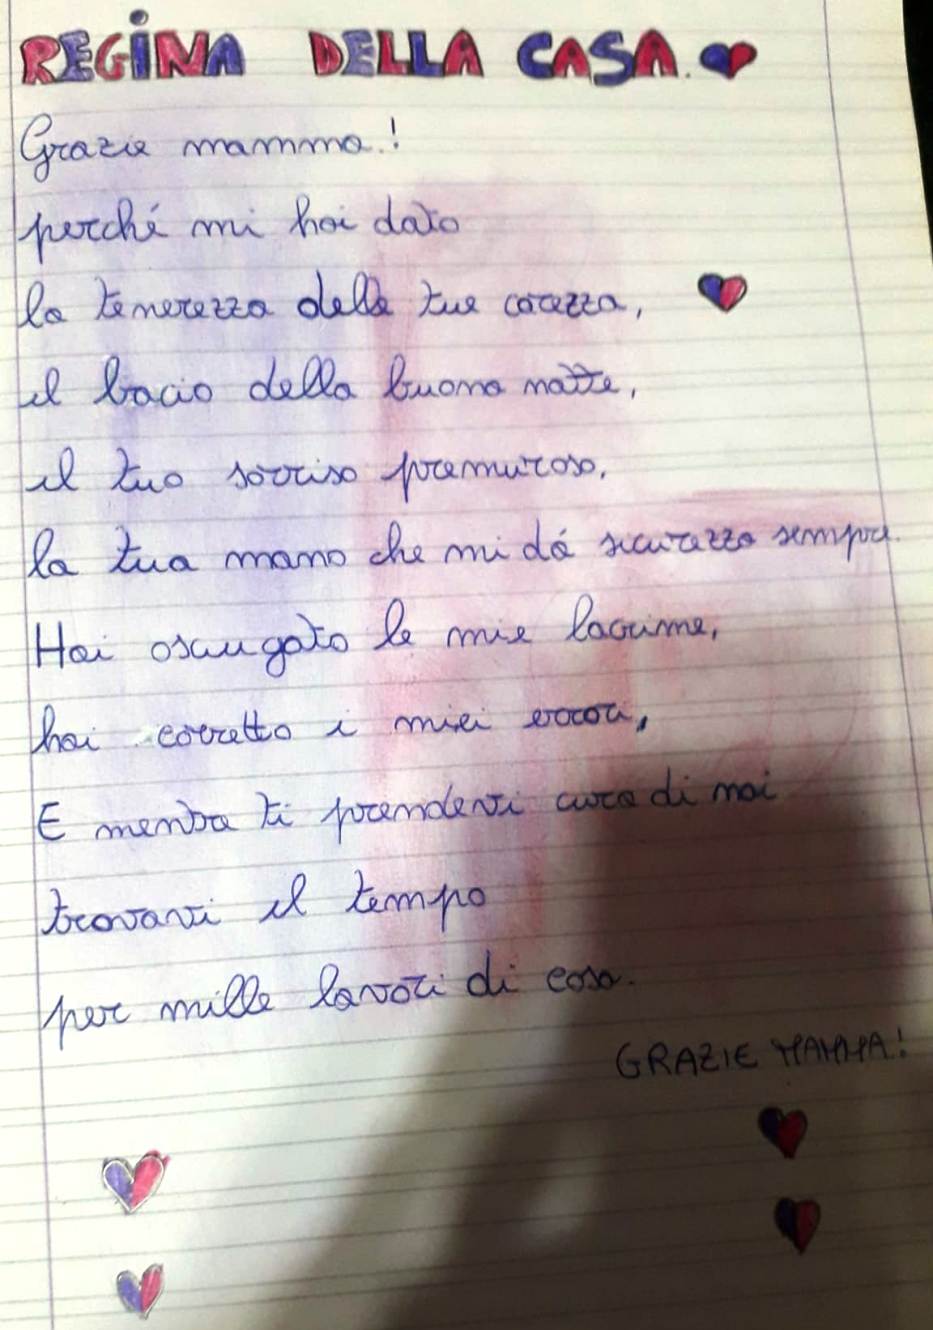 REGINA DELLA CASA.
Grazie mamma!
perché mi hai dato
la tenerezza delle tue carezza,
il bacio della buona notte,
il tuo sorriso premuroso,
la tua mano che mi dà sicurezza sempre.
Hai asciugato le mie lacrime,
hai corretto i miei errori,
E mentre ti prendevi cura di noi
trovavi il tempo
per mille lavori di casa.
GRAZIE MAMMA!